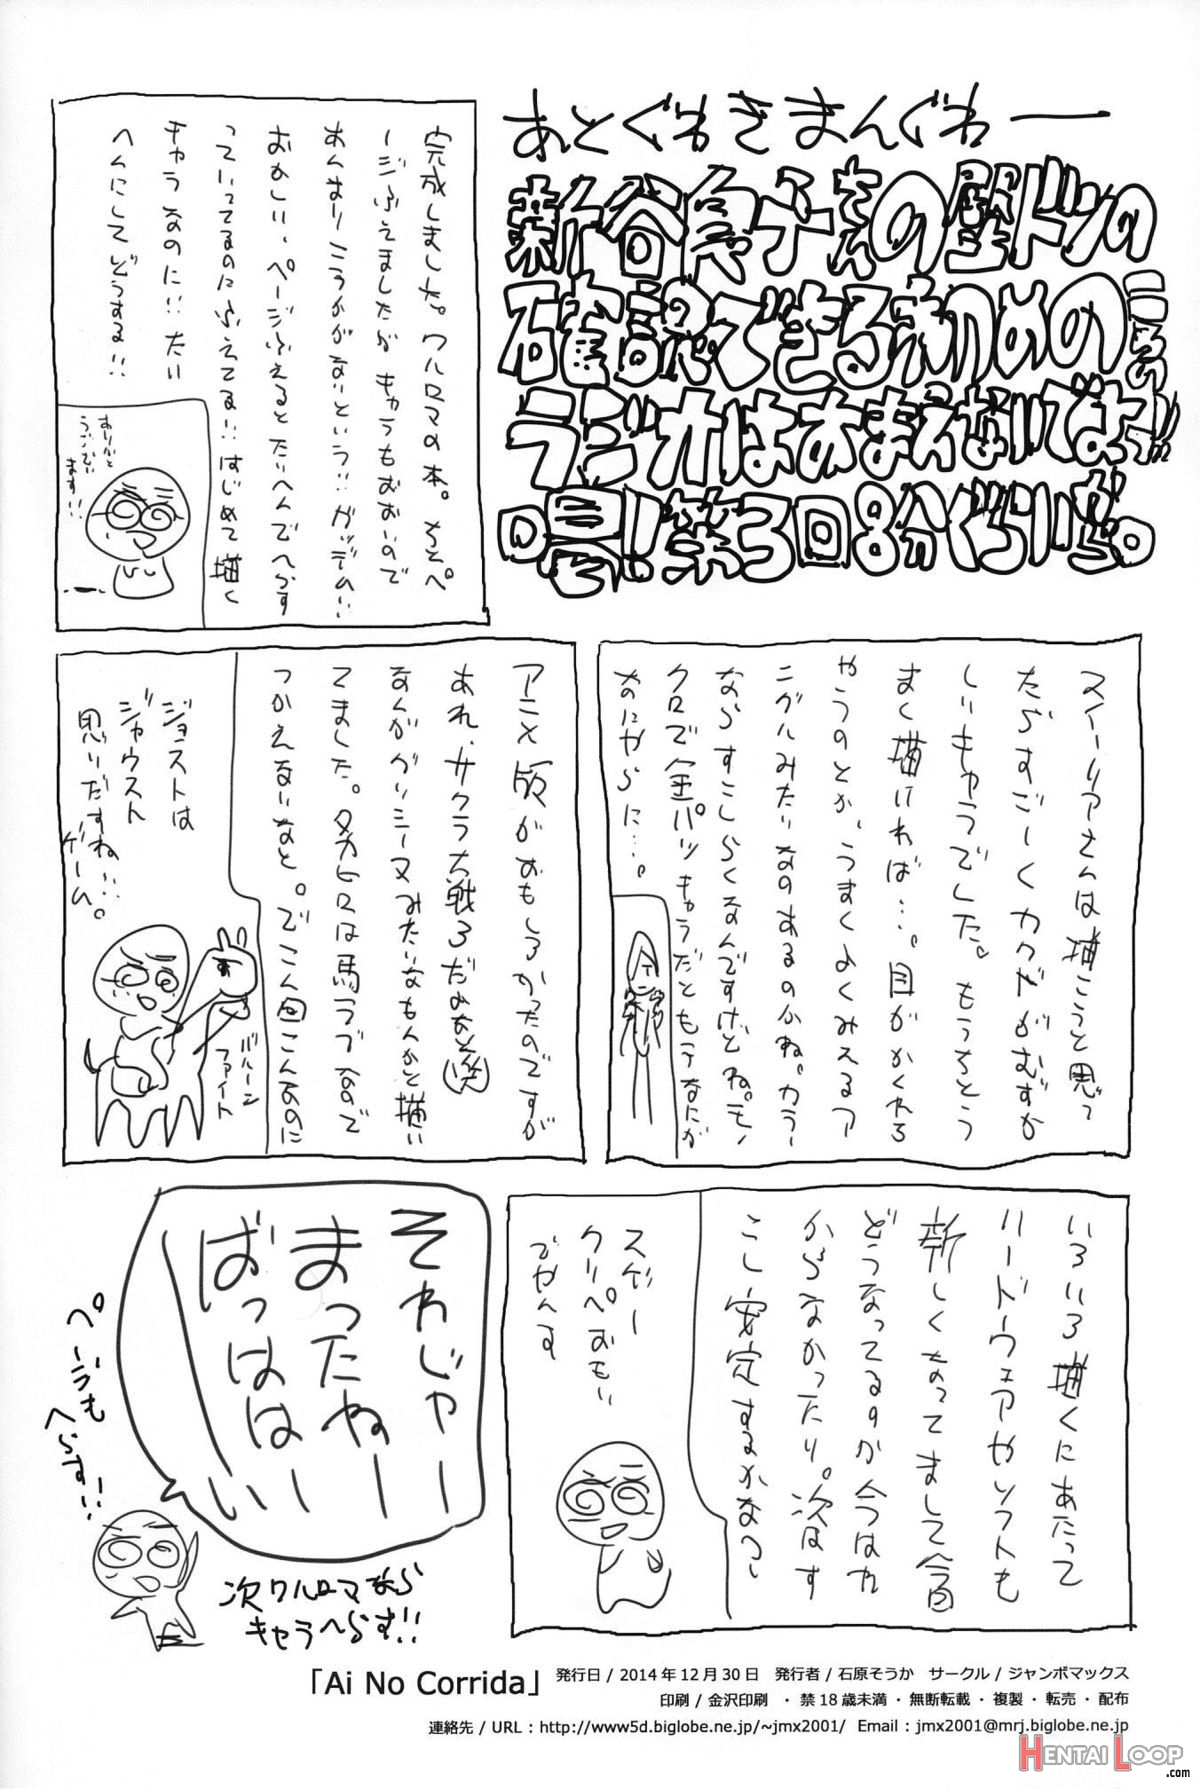 あとぐわきまんぐわー
新谷良子さんの壁ドンの
確認できる初めの
ラジオはおまえないでよっ!!
喝!!第3回8分ぐらいから。
完成しました。ワルロマの本。ちとペ
ージふえましたが キャラもおおいので
あんまりこうかがないという!! ガッデム!!
おかしい、ページふえるとたいへんでへらす
っていってるのにふえてる!! はじめて描く
キャラなのに!! たい
へんにしてどうする!!
ありがと
うござい
ます!!
スイーリアさんは描こうと思っ
たらすごーくカクどがむずか
しいキャラでした。もうちとう
まく描ければ…。目がかくれち
ゃうのとか、うまくよくみえるア
ングルみたいなのあるのかね。カラー
ならすこしらくなんですけどね。モノ
クロで金パツキャラだともうなにが
なにやらに…。
アニメ版がおもしろかったのですが
あれ、サクラ大戦3だみなと(笑)
なんかグリシーヌみたいなもんかと描い
てました。タカヒロは馬ラブなので
つかえないなと。でこん回こんなのに
ジョストは
ジャウスト
思いだすね…
ゲーム。
バルーン
ファイト
いろいろ描くにあたって
ハードウェアやソフトも
新しくなってまして今回
どうなってるのか今はわ
からなかったり。次はす
こし安定するかなっ
スゲー
クリペおもい
でやんす
それじゃー
まったねー
ばっはは
ーい
ページも
へらす!!
次ワルロマなら
キャラへらす!!
「Ai No Corrida」 発行日 / 2014年12月30日　発行者 / 石原そうか　サークル / ジャンボマックス
印刷 / 金沢印刷　・禁18歳未満・無断転載・複製・転売・配布
連絡先 / URL : http://www5d.biglobe.ne.jp/~jmx2001/ Email : jmx2001@mrj.biglobe.ne.jp
HENTAI LOOP
.com